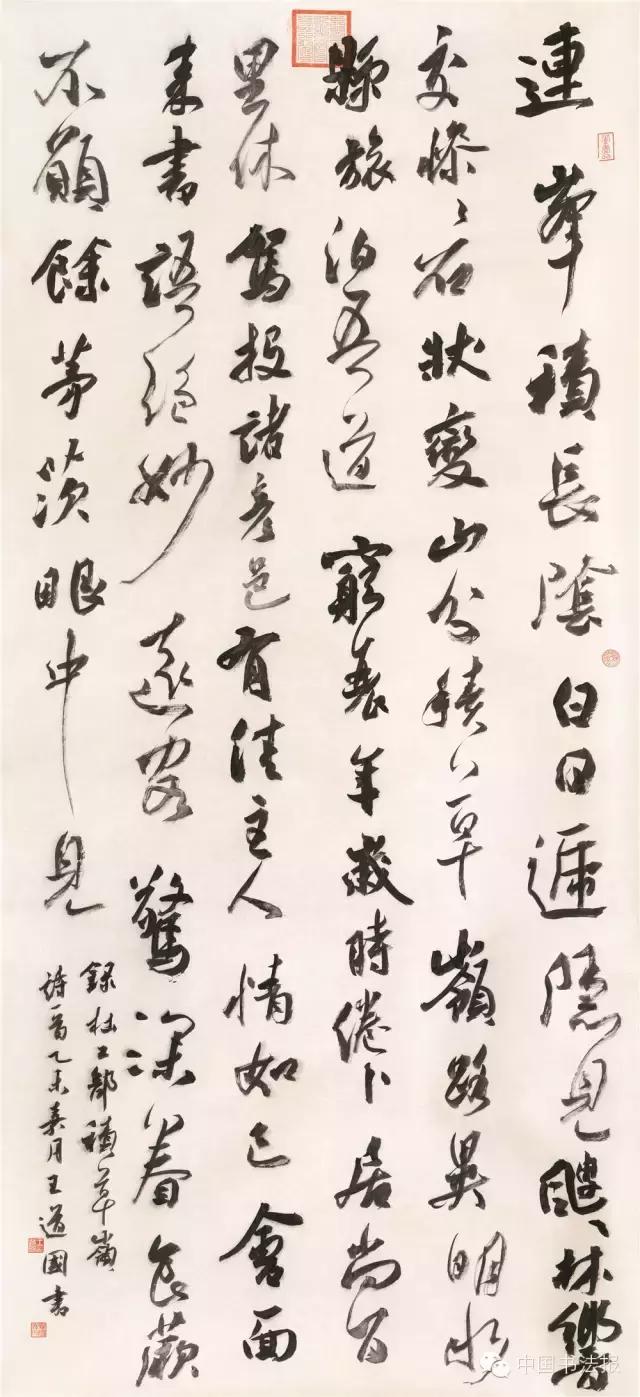 連峯積長陰白日遞隱見颼〻林響
交慘〻石狀變山分積草嶺路異明水
縣旅泊吾道窮衰年歲時倦卜居尚百
里休駕投諸彥邑有佳主人情如已會面
來書語絕妙遠客驚深眷食蕨
不願餘茅茨眼中見
錄杜工部積草嶺
詩一首乙未葵月王道國書
中国书法报